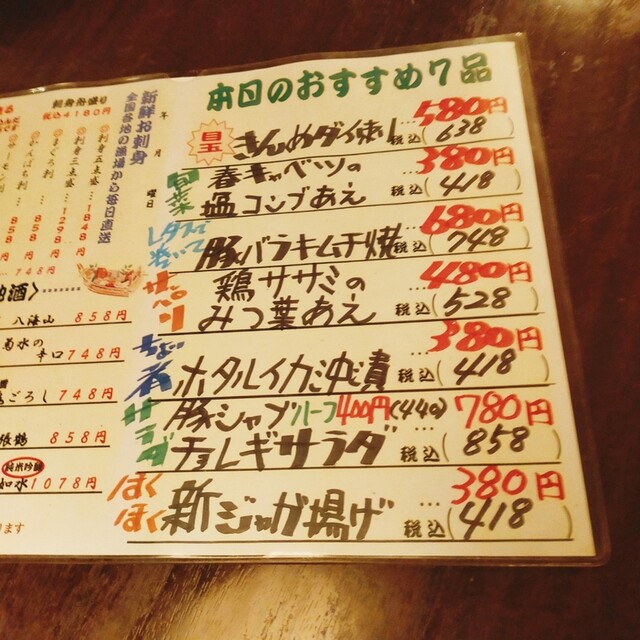 本日のおすすめ7品
目玉 きんめダイ刺し …580円
税込(638)
旬菜 春キャベツの 塩コンブあえ …380円
税込(418)
レタスで巻いて 豚バラキムチ焼 …680円
税込(748)
サッパリ 鶏ササミの みつ葉あえ …480円
税込(528)
ホタルイカ沖漬 …380円
税込(418)
サラダ 豚シャブ ハーフ400円(440) 780円
チョレギサラダ …
税込(858)
ほくほく 新ジャガ揚げ …380円
税込(418)
新鮮お刺身
全国各地の漁場から毎日直送
年 月 曜日
税込4180円
刺身五点盛…1848円
刺身三点盛…1298円
まぐろ刺…858円
かんぱち刺…858円
…748円
八海山 858円
菊水の辛口 748円
ごろし 748円
張鶴 858円
純米吟醸
如水 1078円
ます